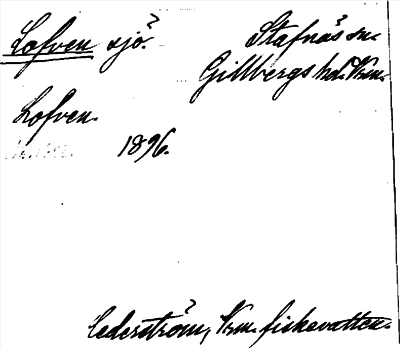 Lofven sjö. Stafnäs sn.
Gillbergs hd. Vrm.
Lofven.
1896.
Cederström, Vrm. fiskevatten.